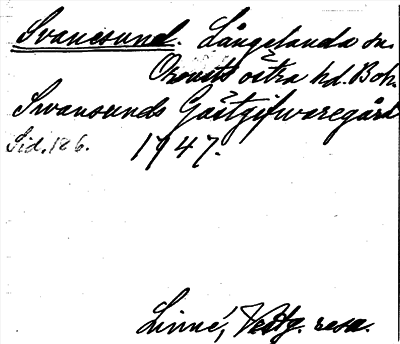 Svanesund. Långelanda sn.
Orousts östra hd. Boh.
Swansunds Gästgifwaregård
Sid. 126. 1747.
Linné, Vestg. resa.